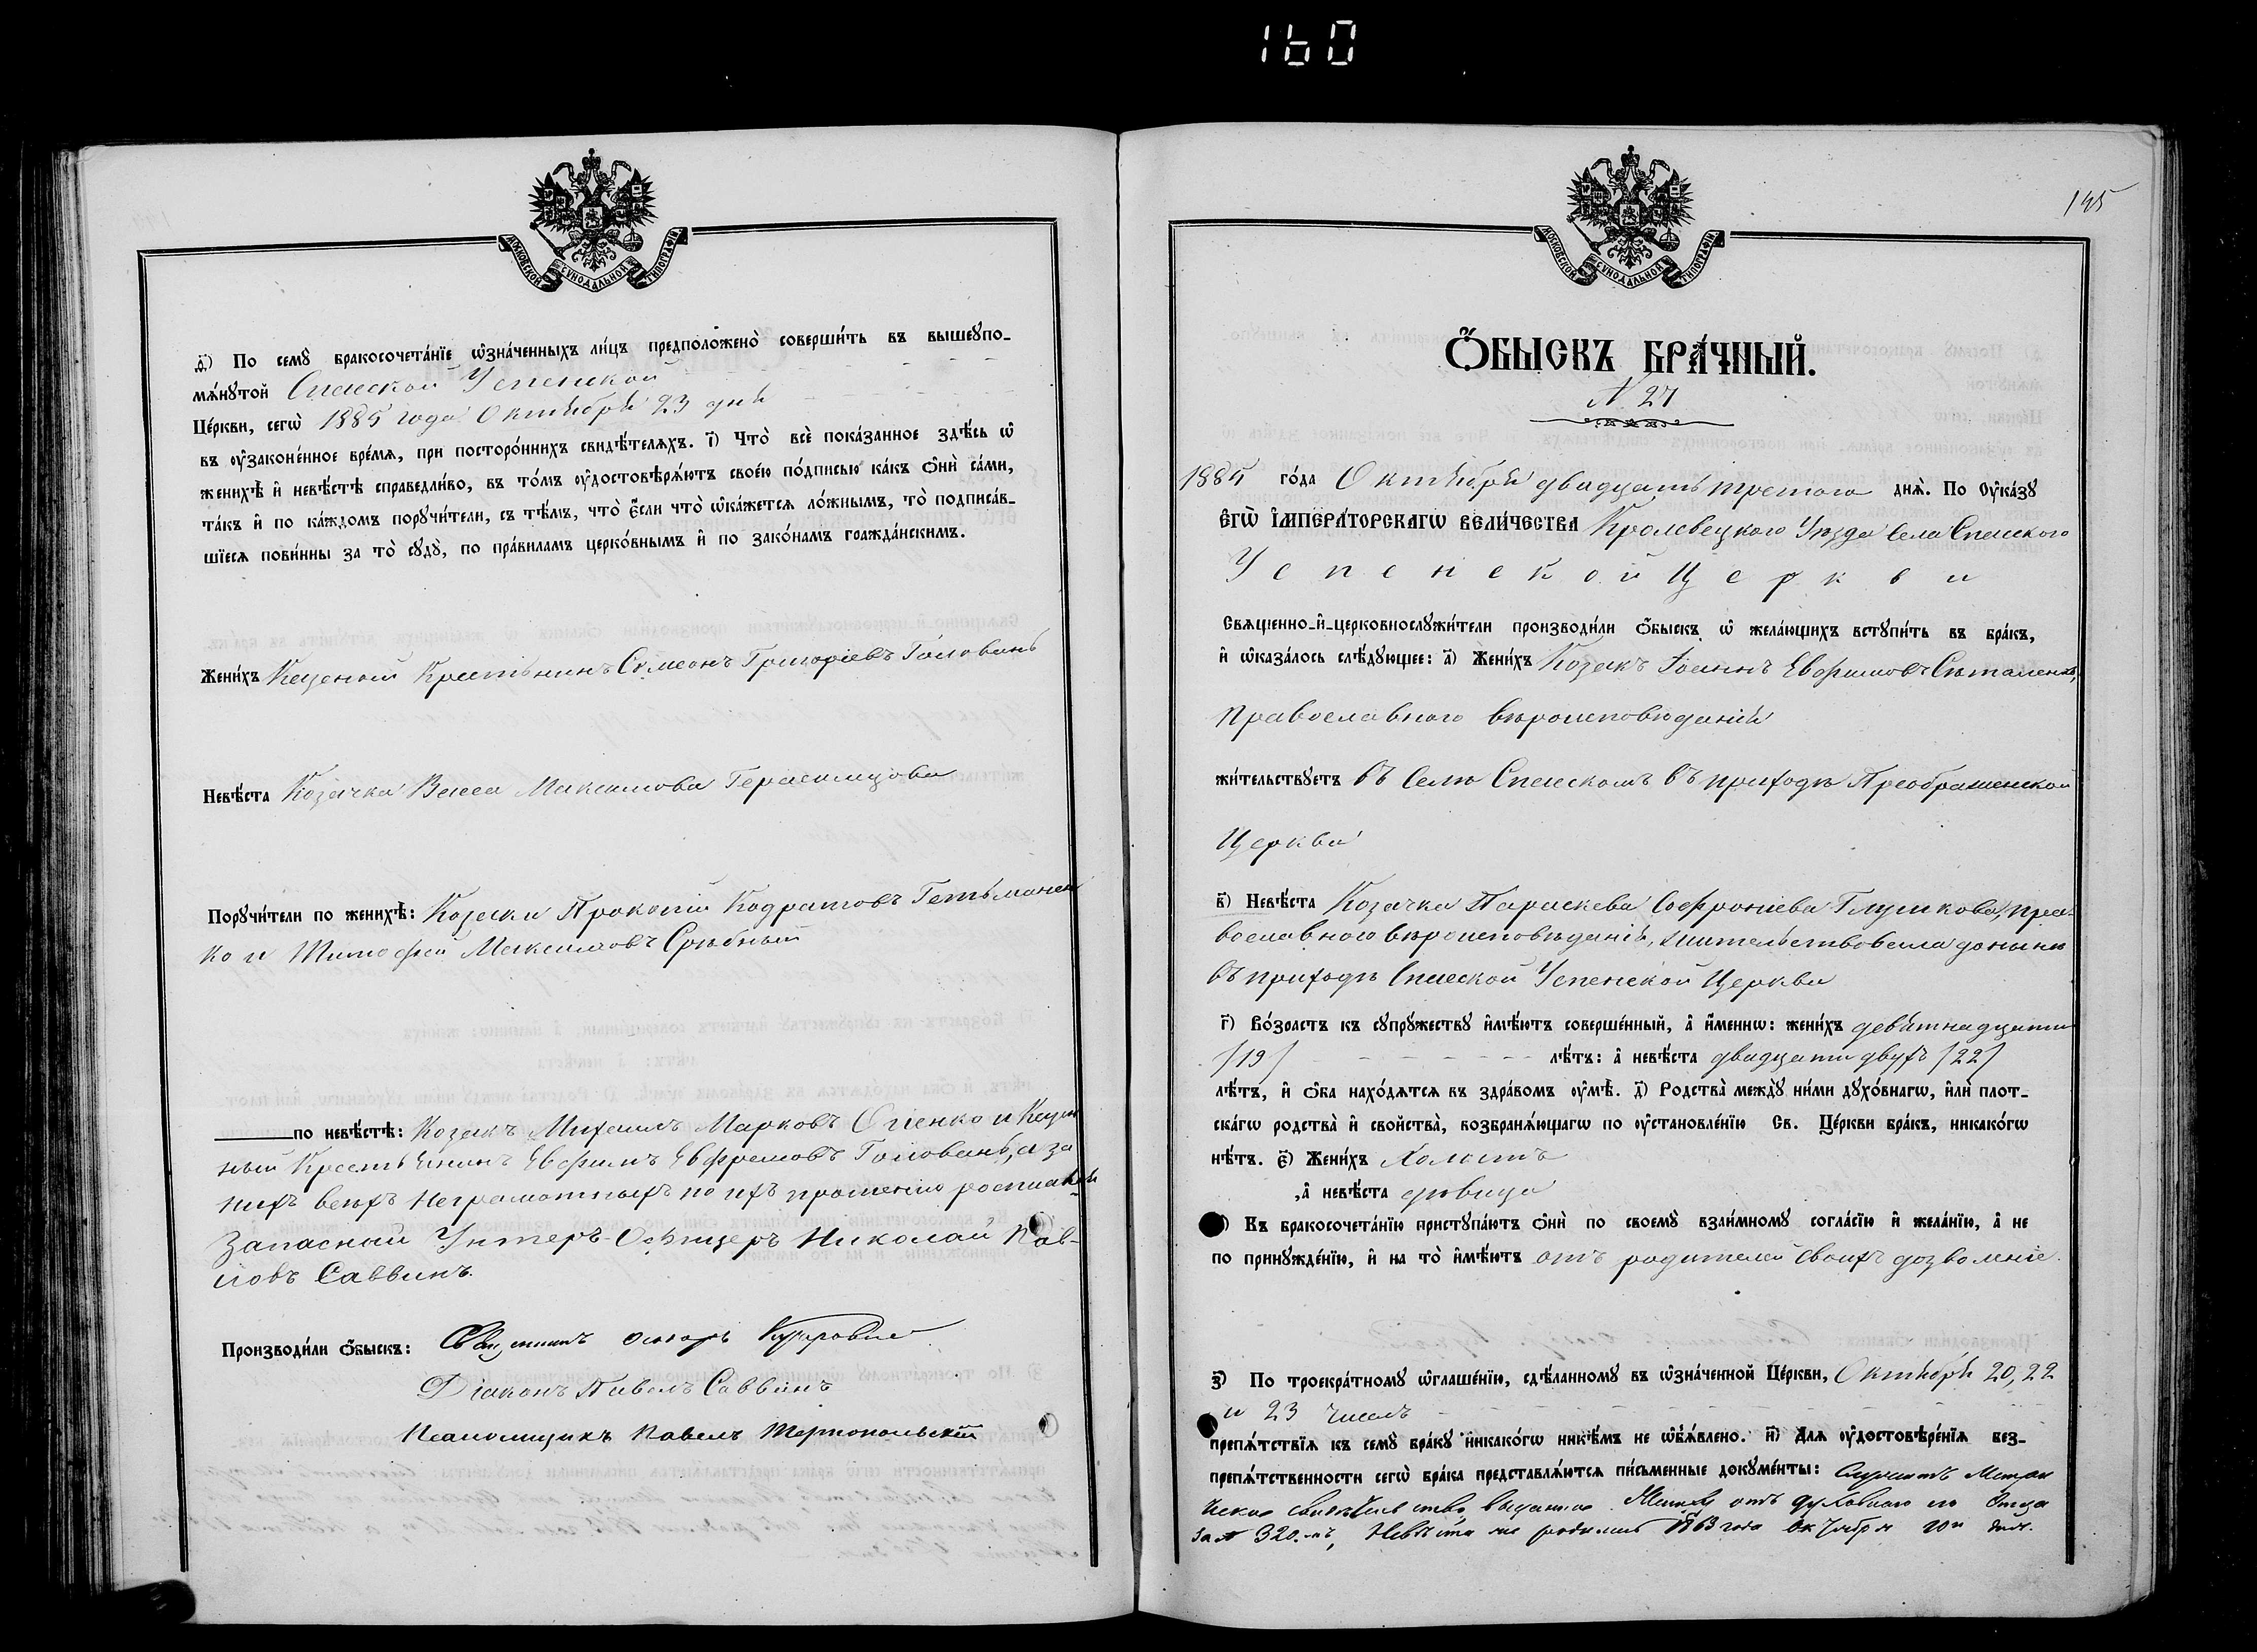 160
МОСКОВСКОЙ СѴНОДАЛЬНОЙ ТИПОГРАФІИ
д҃і) По семꙋ̀ бракосочета́нїе ѡ҆зна́ченныхъ ли́цъ предположенò соверши́ть въ вышеꙋпо-
мѧ́нꙋтой Спасской Успенской
Це́ркви, сегѡ̀ 1885 года Октября 23 дня
въ ᲂу҆законе́нное вре́мѧ, при посторо́ннихъ свидѣ́телѧхъ. і҃) Чтò всѐ пока́занное здѣ́сь ѡ҆
женихѣ̀ и҆ невѣ́стѣ справедли́во, въ то́мъ ᲂу҆достовѣрѧ́ютъ свое́ю по́дписью ка́къ ѻ҆нѝ са́ми,
та́къ и҆ по ка́ждомъ порꙋчи́тели, съ тѣ́мъ, что̀ є҆́сли что̀ ѡ҆ка́жетсѧ ло́жнымъ, то̀ подписа́в-
шїесѧ пови́нны за то̀ сꙋдꙋ̀, по пра́виламъ церко́внымъ и҆ по зако́намъ гражда́нскимъ.
Жени́хъ Казеный Крестьянинъ Симеонъ Григоріевъ Головань
Невѣ́ста Козачка Васса Максимова Герасимцова
Порꙋчи́тели по женихѣ̀: Козаки Прокопій Кодратовъ Гетьманен
ко и Тимофей Максимовъ Срѣбный
по невѣ́стѣ: Козакъ Михаилъ Марковъ Огіенко и Казен
ный Крестьянинъ Евфимъ Ефремовъ Головань, а за
нихъ всѣхъ неграмотныхъ по ихъ прошенію росписался
Запасный Унтеръ-Офицеръ Николай Пав-
ловъ Саввинъ.
Производи́ли ѻ҆́быскъ: Священникъ
Діаконъ Павелъ Саввинъ
Псаломщикъ Павелъ Тернопольскій
145
МОСКОВСКОЙ СѴНОДАЛЬНОЙ ТИПОГРАФІИ
Ѻ҆́БЫСКЪ БРА́ЧНЫЙ.
N 27
1885 го́да Октября двадцать третого днѧ̀. По Оу҆ка́зꙋ
Є҆ГѠ̀ І҆МПЕРА́ТОРСКАГѠ ВЕЛИ́ЧЕСТВА Кролевецкого Уѣзда Села Спасского
Успенской Церкви
Свѧще́нно-и҆-церковнослꙋжи́тели производи́ли ѻ҆́быскъ ѡ҆ жела́ющихъ встꙋпи́ть въ бра́къ,
и҆ ѡ҆каза́лось слѣ́дꙋющее: а҃) Жени́хъ Козакъ Іоаннъ Евфимовъ
Православного вѣроисповѣданія
жи́тельствꙋетъ въ Селѣ Спасскомъ въ приходѣ Преображенской
Церкви
в҃) Невѣ́ста Козачка Параскева Софроніева Глушкова, пра-
вославного вѣроисповѣданія, жительствовала донынѣ
въ приходѣ Спасской Успенской Церкви
г҃) Во́зрастъ къ сꙋпрꙋ́жествꙋ и҆мѣ́ютъ соверше́нный, а҆ и҆́менно: жени́хъ девятнадцати
/19/ лѣ́тъ: а҆ невѣ́ста двадцати двухъ /22/
лѣ́тъ, и҆ ѻ҆́ба нахо́дѧтсѧ въ здра́вомъ ᲂу҆мѣ̀. д҃) Родства̀ междꙋ̀ ни́ми дꙋхо́внагѡ, и҆лѝ плот-
ска́гѡ родства̀ и҆ свойства̀, возбранѧ́ющагѡ по ᲂу҆становле́нїю Св. Це́ркви бра́къ, никако́гѡ
нѣ́тъ. є҃) Жени́хъ Холостъ
, а҆ невѣ́ста дѣвица
) Въ бракосочета́нїю пристꙋпа́ютъ ѻ҆нѝ по своемꙋ̀ взаи́мномꙋ согла́сїю и҆ жела́нїю, а҆ не
по принꙋжде́нїю, и҆ на то̀ и҆мѣ́ютъ отъ родителей своихъ дозволеніе.
з҃) По троекра́тномꙋ ѡ҆глаше́нїю, сдѣ́ланномꙋ въ ѡ҆зна́ченной Це́ркви, Октября 20, 22
и 23 числъ
препѧ́тствїѧ къ семꙋ̀ бра́кꙋ никако́гѡ никѣ́мъ не ѡ҆б̾ѧ́влено. и҃) Для ᲂу҆достовѣре́нїѧ без-
препѧ́тственности сегѡ̀ бра́ка представлѧ́ютсѧ пи́сьменные докꙋме́нты:
за № 320.мъ, Невѣста же родилась 1863 года Октября 10 дня.